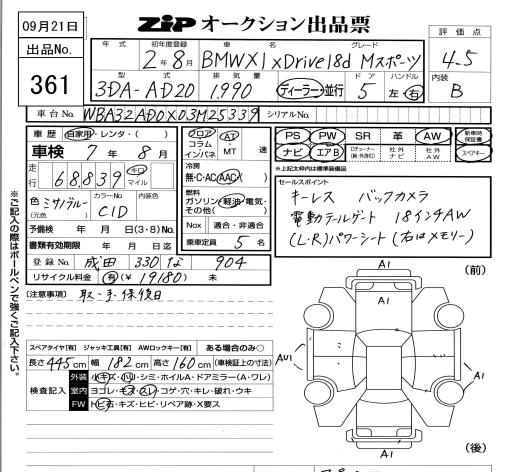 09月21日
ZIP オークション出品票
出品No.
361
年式 初年度登録 車名 グレード
2年8月 BMWX1 xDrive18d Mスポーツ
型式 排気量 ドア ハンドル
3DA-AD20 1,990 ディーラー 並行 5 左・右
評価点
4.5
内装
B
車台No. WBA32AD0X03M25339 シリアルNo.
車歴 自家用・レンタ・( )
車検 7年8月
走行 68,839 キロ マイル
色 ミサノブルー (元色) カラーNo. C1D
予備検 年 月 日(3・8)No.
書類有効期限 年 月 日迄
登録No. 成田 330 な 904
リサイクル料金 有(¥ 19,180) 未
フロア コラム インパネ AT MT 速
冷房
無・C・AC・AAC( )
燃料
ガソリン・軽油・電気・その他( )
Nox 適合・非適合
乗車定員 5 名
PS PW SR 革 AW 新車時保証書
ナビ エアB 社外ナビ 社外AW スペアキー
※上記太枠内は標準装備品
セールスポイント
キーレス バックカメラ
電動テールゲート 18インチAW
(L・R)パワーシート(右はメモリー)
[注意事項] 取・手・保後日
スペアタイヤ[有] ジャッキ工具[有] AWロックキー[有] ある場合のみ○
長さ 445 cm 幅 182 cm 高さ 160 cm (車検証上の寸法)
検査記入
外装 小キズ・凹・シミ・ホイルA・ドアミラー(A・ワレ)
室内 ヨゴレ・キズ・スレ・コゲ・穴・キレ・破れ・ウキ
FW トビ石・キズ・ヒビ・リペア跡・X要ス
※ご記入の際はボールペンで強くご記入下さい。
(前)
A1
A1
AU1
A1
A1
A1
(後)